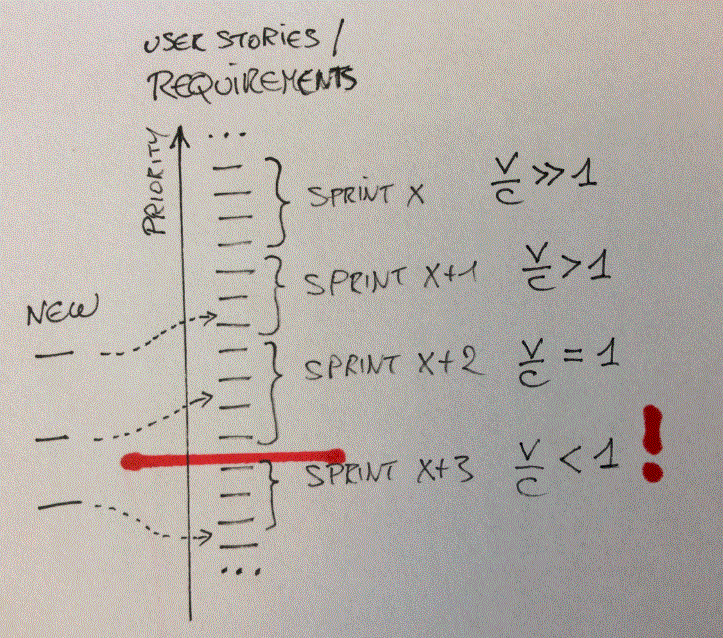 USER STORIES /
REQUIREMENTS
PRIORITY
...
SPRINT X V/C >> 1
SPRINT X+1 V/C > 1
NEW
SPRINT X+2 V/C = 1
SPRINT X+3 V/C < 1 !
...